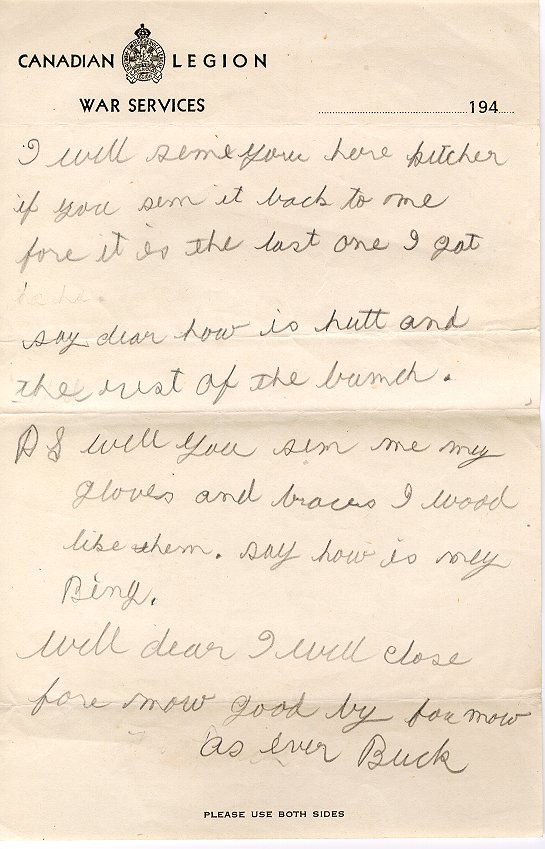 CANADIAN LEGION
WAR SERVICES
194
I will seme you here pitcher
if you sem it back to me
fore it is the last one I got
say dear how is hutt and
the rust of the bumch.
PS will you sem me my
gloves and braces I wood
like them. say how is my
Bing.
Well dear I will close
fore mow good by for mow
as ever Buck
PLEASE USE BOTH SIDES